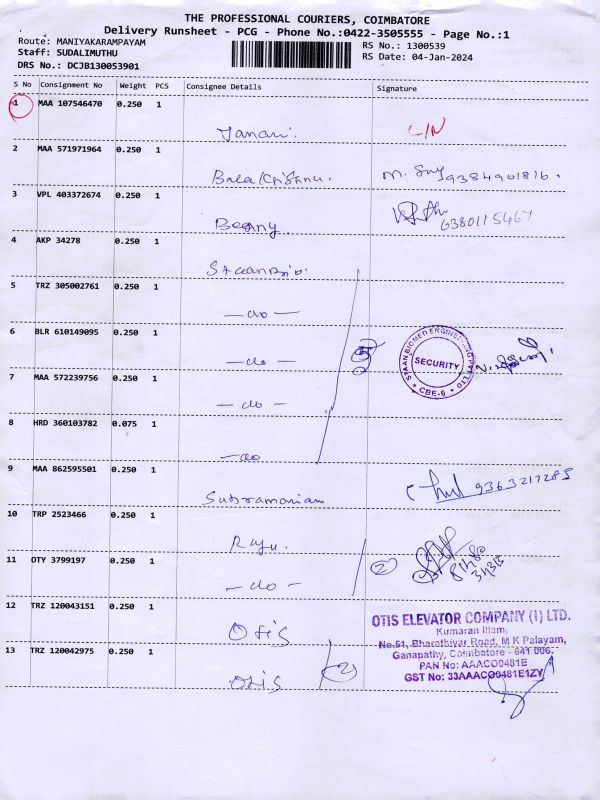 THE PROFESSIONAL COURIERS, COIMBATORE
Delivery Runsheet - PCG - Phone No.:0422-3505555 - Page No.:1
Route: MANIYAKARAMPAYAM
RS No.: 1300539
Staff: SUDALIMUTHU
RS Date: 04-Jan-2024
DRS No.: DCJB130053901
S No Consignment No Weight PCS Consignee Details Signature
1 MAA 107546470 0.250 1
Janani. L/N
2 MAA 571971964 0.250 1
9384901816.
3 VPL 403372674 0.250 1
Beeny 6380115467
4 AKP 34278 0.250 1
StaanBio.
5 TRZ 305002761 0.250 1
- do -
6 BLR 610149095 0.250 1
- do - 5
STAAN BIOMED ENGINEERING PVT LTD
SECURITY
* CBE-6 *
7 MAA 572239756 0.250 1
- do -
8 HRD 360103782 0.075 1
- do
9 MAA 862595501 0.250 1
Subramanian 9363217285
10 TRP 2523466 0.250 1
Raju.
11 OTY 3799197 0.250 1
- do - 2
12 TRZ 120043151 0.250 1
Otis
13 TRZ 120042975 0.250 1
Otis 2
OTIS ELEVATOR COMPANY (I) LTD.
Kumaran Illam,
No.51, Bharathiyar Road, M K Palayam,
Ganapathy, Coimbatore - 641 006.
PAN No: AAACO0481E
GST No: 33AAACO0481E1ZY